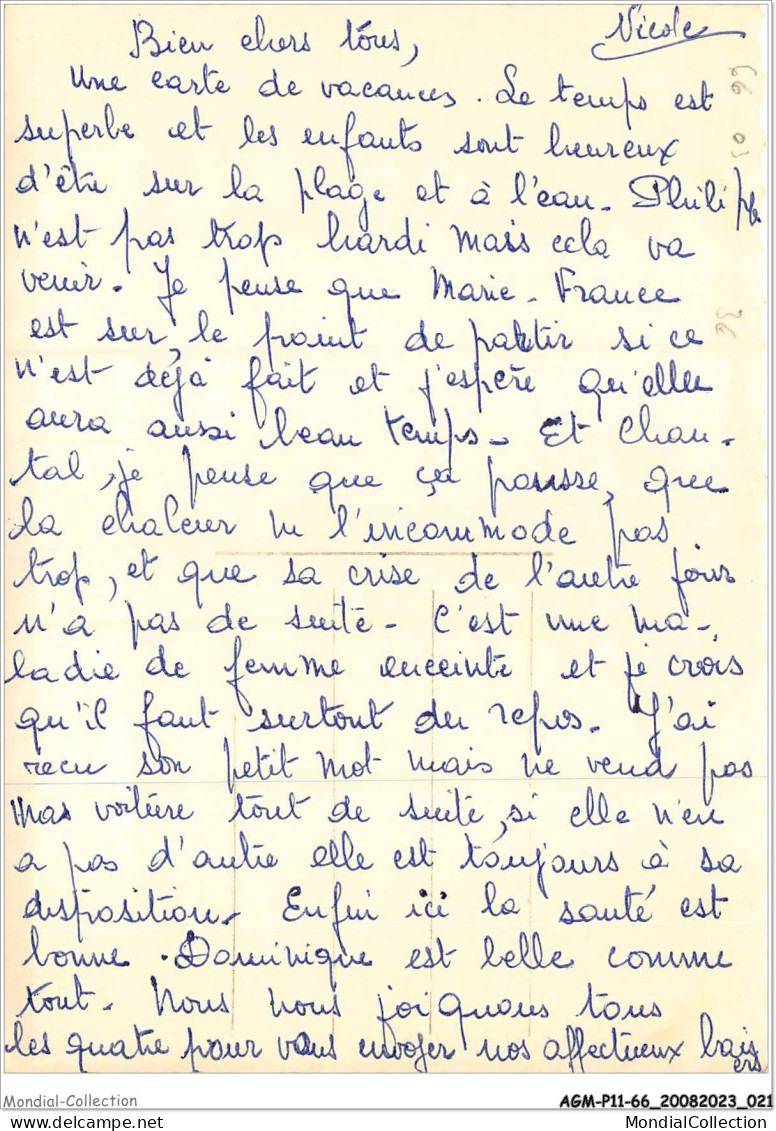 Nicole
Bien chers tous,
Une carte de vacances. Le temps est
superbe et les enfants sont heureux
d'être sur la plage et à l'eau. Philippe
n'est pas trop hardi mais cela va
venir. Je pense que Marie-France
est sur le point de partir si ce
n'est déjà fait et j'espère qu'elle
aura aussi beau temps. Et Chan-
tal, je pense que ça pousse, que
la chaleur ne l'incommode pas
trop, et que sa crise de l'autre fois
n'a pas de suite. C'est une ma-
ladie de femme enceinte et je crois
qu'il faut surtout du repos. J'ai
recu son petit mot mais ne vend pas
mas voiture tout de suite, si elle n'en
a pas d'autre elle est toujours à sa
disposition. Enfin ici la santé est
bonne. Dominique est belle comme
tout. Nous nous joignons tous
les quatre pour vous envoyer nos affectueux bais
ers
66 03
36
Mondial-Collection
AGM-P11-66_20082023_021
MondialCollection.com